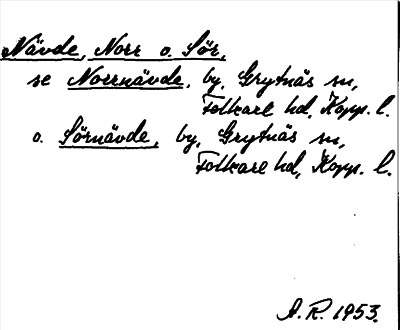 Nävde, Norr o. Sör,
se Norrnävde, by, Grytnäs sn,
Folkare hd, Kopp. l.
o. Sörnävde, by, Grytnäs sn,
Folkare hd, Kopp. l.
A. R. 1953.